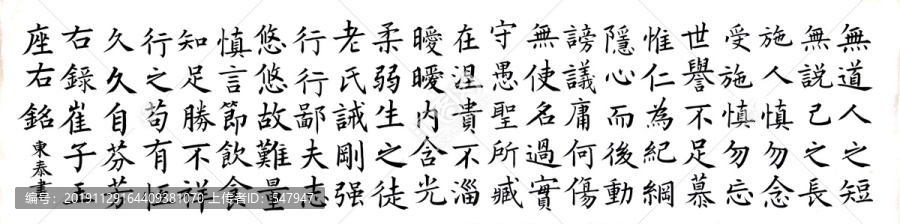 無道人之短
無説己之長
施人慎勿念
受施慎勿忘
世譽不足慕
惟仁為紀綱
隱心而後動
謗議庸何傷
無使名過實
守愚聖所臧
在涅貴不淄
曖曖内含光
柔弱生之徒
老氏誡剛强
行行鄙夫志
悠悠故難量
慎言節飲食
知足勝不祥
行之苟有恒
久久自芬芳
右錄崔子玉
座右銘 東泰書
编号:20191129164409381070 上传者ID:547947